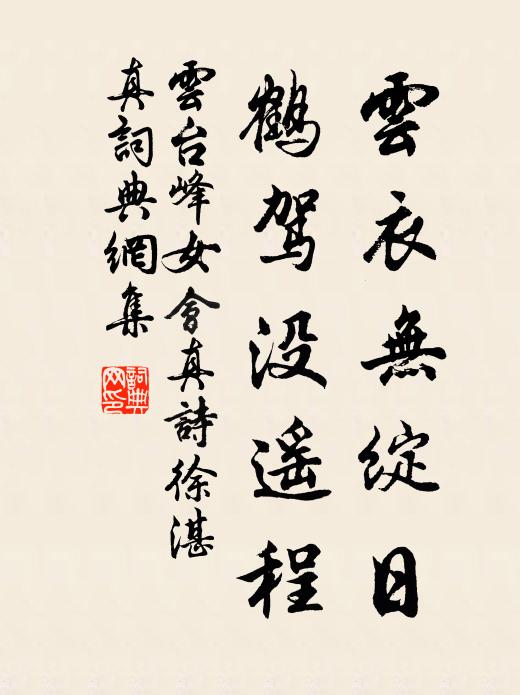 雲衣無綻日
鶴駕没遥程
雲台峰女會真詩徐湛
真詞典網集
詞典网印